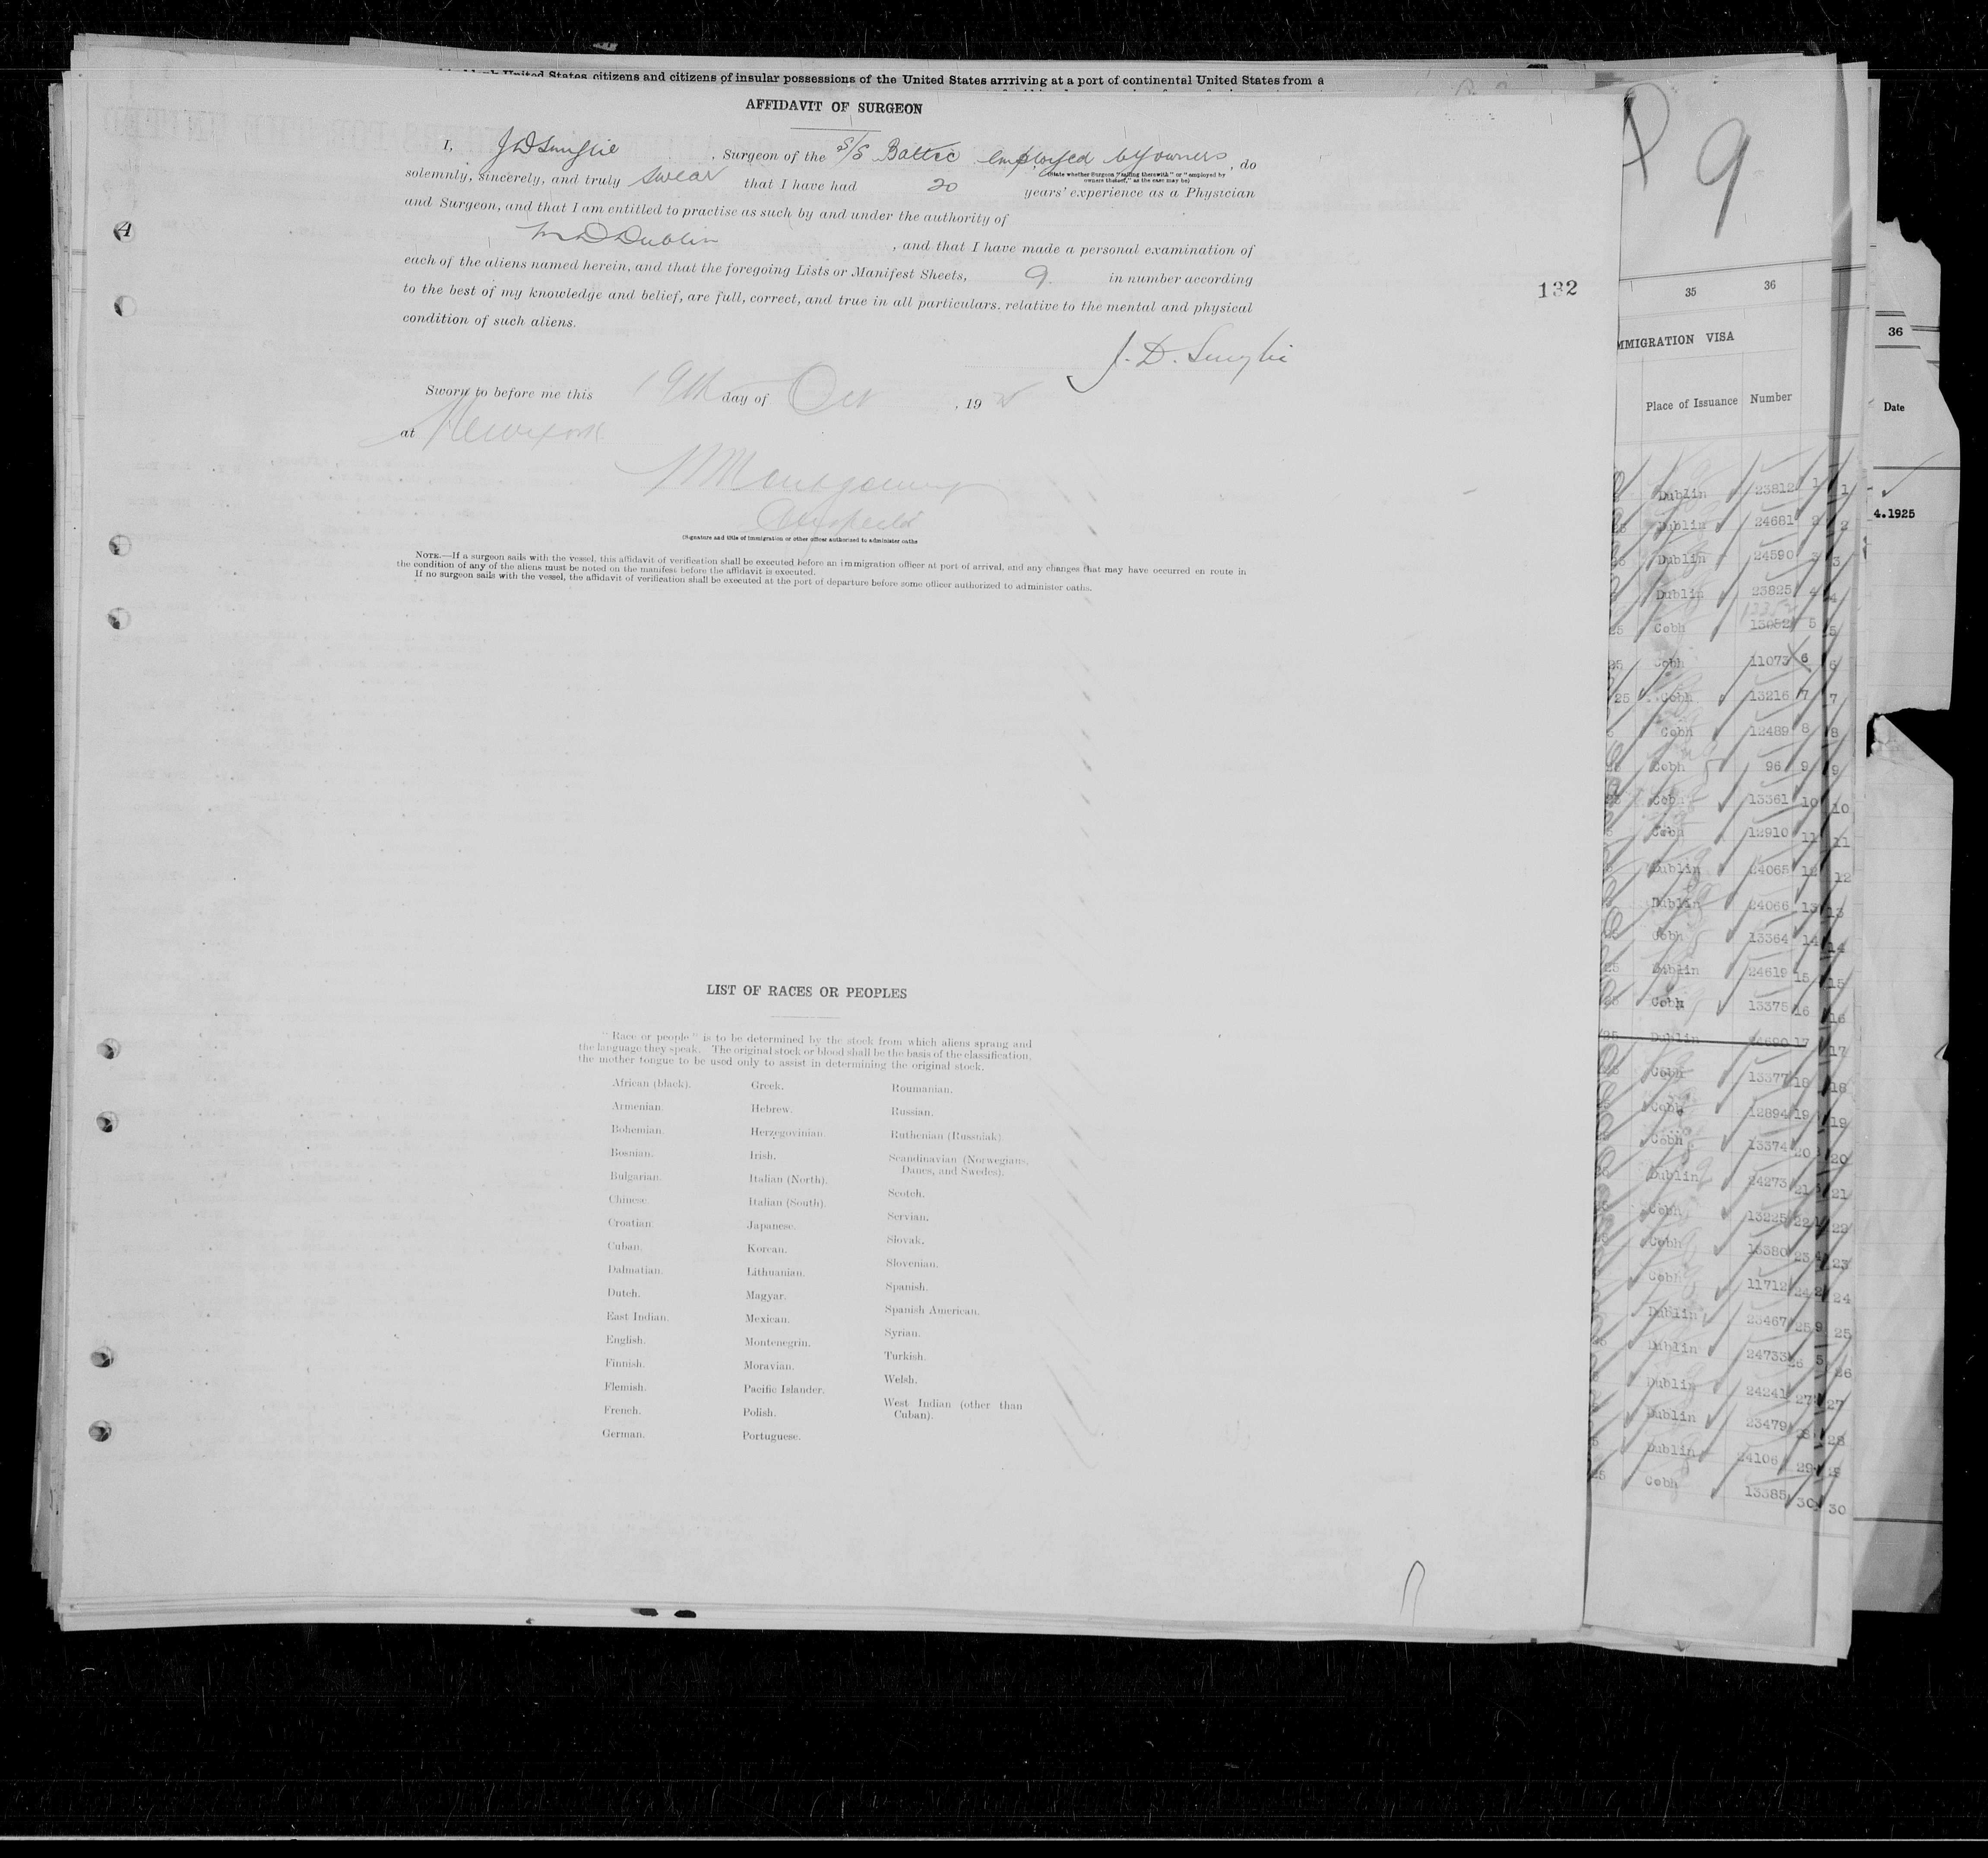 United States citizens and citizens of insular possessions of the United States arrriving at a port of continental United States from a
AFFIDAVIT OF SURGEON
I, , Surgeon of the S/S Baltic employed by owners, do
(State whether Surgeon "sailing therewith" or "employed by
owners thereof," as the case may be)
solemnly, sincerely, and truly swear that I have had 20 years' experience as a Physician
and Surgeon, and that I am entitled to practise as such by and under the authority of
M D Dublin , and that I have made a personal examination of
each of the aliens named herein, and that the foregoing Lists or Manifest Sheets, 9 in number according
to the best of my knowledge and belief, are full, correct, and true in all particulars. relative to the mental and physical
condition of such aliens.
J. D.
Sworn to before me this 19th day of Oct , 19
at New York
Montgomery
(Signature and title of immigration or other officer authorized to administer oaths
NOTE.—If a surgeon sails with the vessel, this affidavit of verification shall be executed before an immigration officer at port of arrival, and any changes that may have occurred en route in
the condition of any of the aliens must be noted on the manifest before the affidavit is executed.
If no surgeon sails with the vessel, the affidavit of verification shall be executed at the port of departure before some officer authorized to administer oaths.
4
132
LIST OF RACES OR PEOPLES
"Race or people" is to be determined by the stock from which aliens sprang and
the language they speak. The original stock or blood shall be the basis of the classification,
the mother tongue to be used only to assist in determining the original stock.
African (black).
Armenian.
Bohemian.
Bosnian.
Bulgarian.
Chinese.
Croatian.
Cuban.
Dalmatian.
Dutch.
East Indian.
English.
Finnish.
Flemish.
French.
German.
Greek.
Hebrew.
Herzegovinian.
Irish.
Italian (North).
Italian (South).
Japanese.
Korean.
Lithuanian.
Magyar.
Mexican.
Montenegrin.
Moravian.
Pacific Islander.
Polish.
Portuguese.
Roumanian.
Russian.
Ruthenian (Russniak)
Scandinavian (Norwegians,
Danes, and Swedes).
Scotch.
Servian.
Slovak.
Slovenian.
Spanish.
Spanish American.
Syrian.
Turkish.
Welsh.
West Indian (other than
Cuban).
9
35 36
MMIGRATION VISA
Place of Issuance Number
Dublin 23812 1 1
Dublin 24681 2 2
Dublin 24590 3 3
Dublin 23825 4 4
13352
Cobh 13052 5 5
Cobh 11073 6 6
25 Cobh 13216 7 7
Cobh 12489 8 8
Cobh 96 9 9
Cobh 13361 10 10
Cobh 12910 11 11
Dublin 24065 12 12
Dublin 24066 13 13
Cobh 13364 14 14
Dublin 24619 15 15
Cobh 13375 16 16
Dublin 17 17
Cobh 13377 18 18
Cobh 12894 19 19
Cobh 13374 20 20
Dublin 24273 21 21
Cobh 13225 22 22
Cobh 13380 23 23
Cobh 11712 24 24
Dublin 23467 25 25
Dublin 24733 26 26
Dublin 24241 27 27
Dublin 23479 28 28
Dublin 24106 29 29
25 Cobh 13385 30 30
36
Date
4.1925